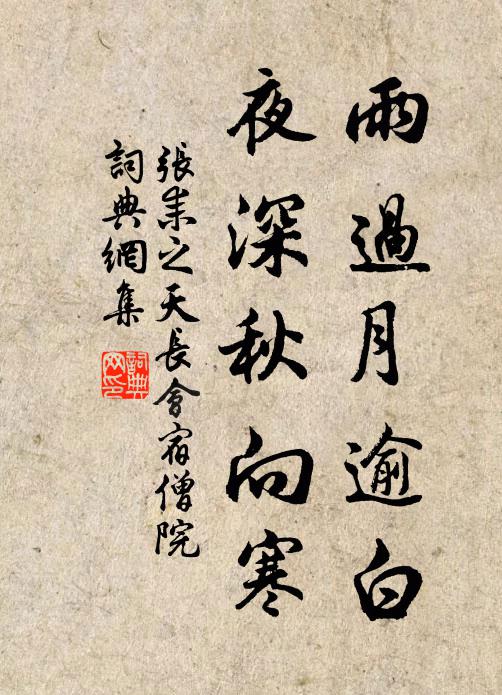 雨過月逾白
夜深秋向寒
張耒之天長會宿僧院
詞典網集
詞典網印